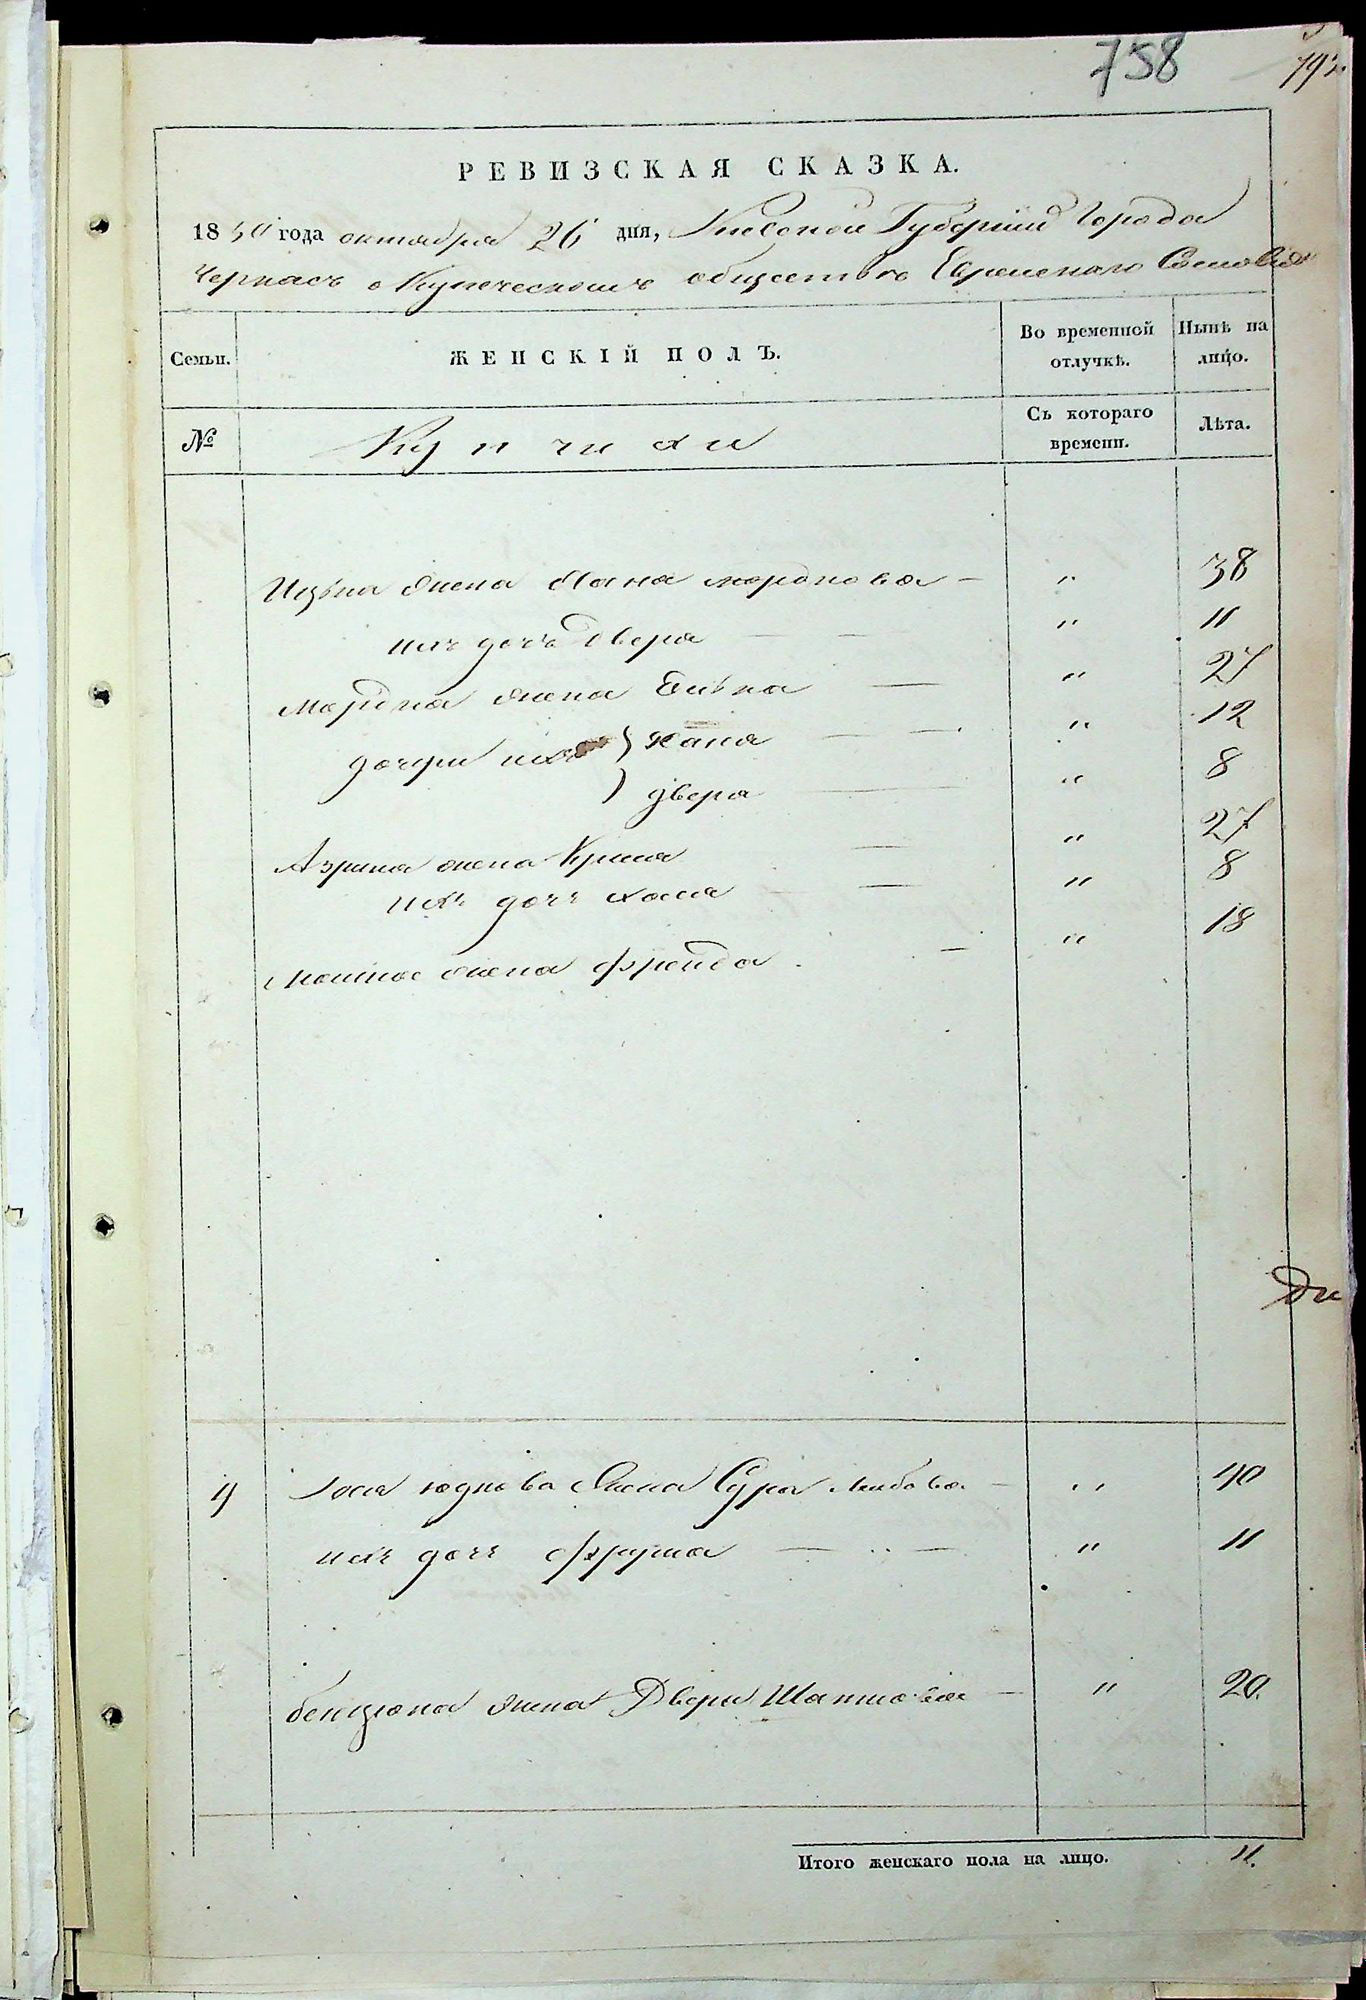 758
РЕВИЗСКАЯ СКАЗКА.
1850 года октября 26 дня, Киевской Губерніи Города
Черкасъ о Купеческомъ обществѣ Еврейскаго Сословія
Семьи. ЖЕНСКІЙ ПОЛЪ. Во временной отлучкѣ. Нынѣ на лицо.
№ Купчихи Съ котораго времени. Лѣта.
жена Хана Мордкова — " 38
ихъ дочь Двера — — " 11
Мордка жена Сивка — " 27
дочери ихъ } Хана — — " 12
} Двера — " 8
жена Круса — " 27
ихъ дочь Хася — — " 8
жена Фрейда . — " 18
Ди
4 Іося Юдкова жена Сура Лейбова — " 40
ихъ дочь Фрума — " — " 11
Бенціона жена Двера — " 20.
Итого женскаго пола на лицо. 11.